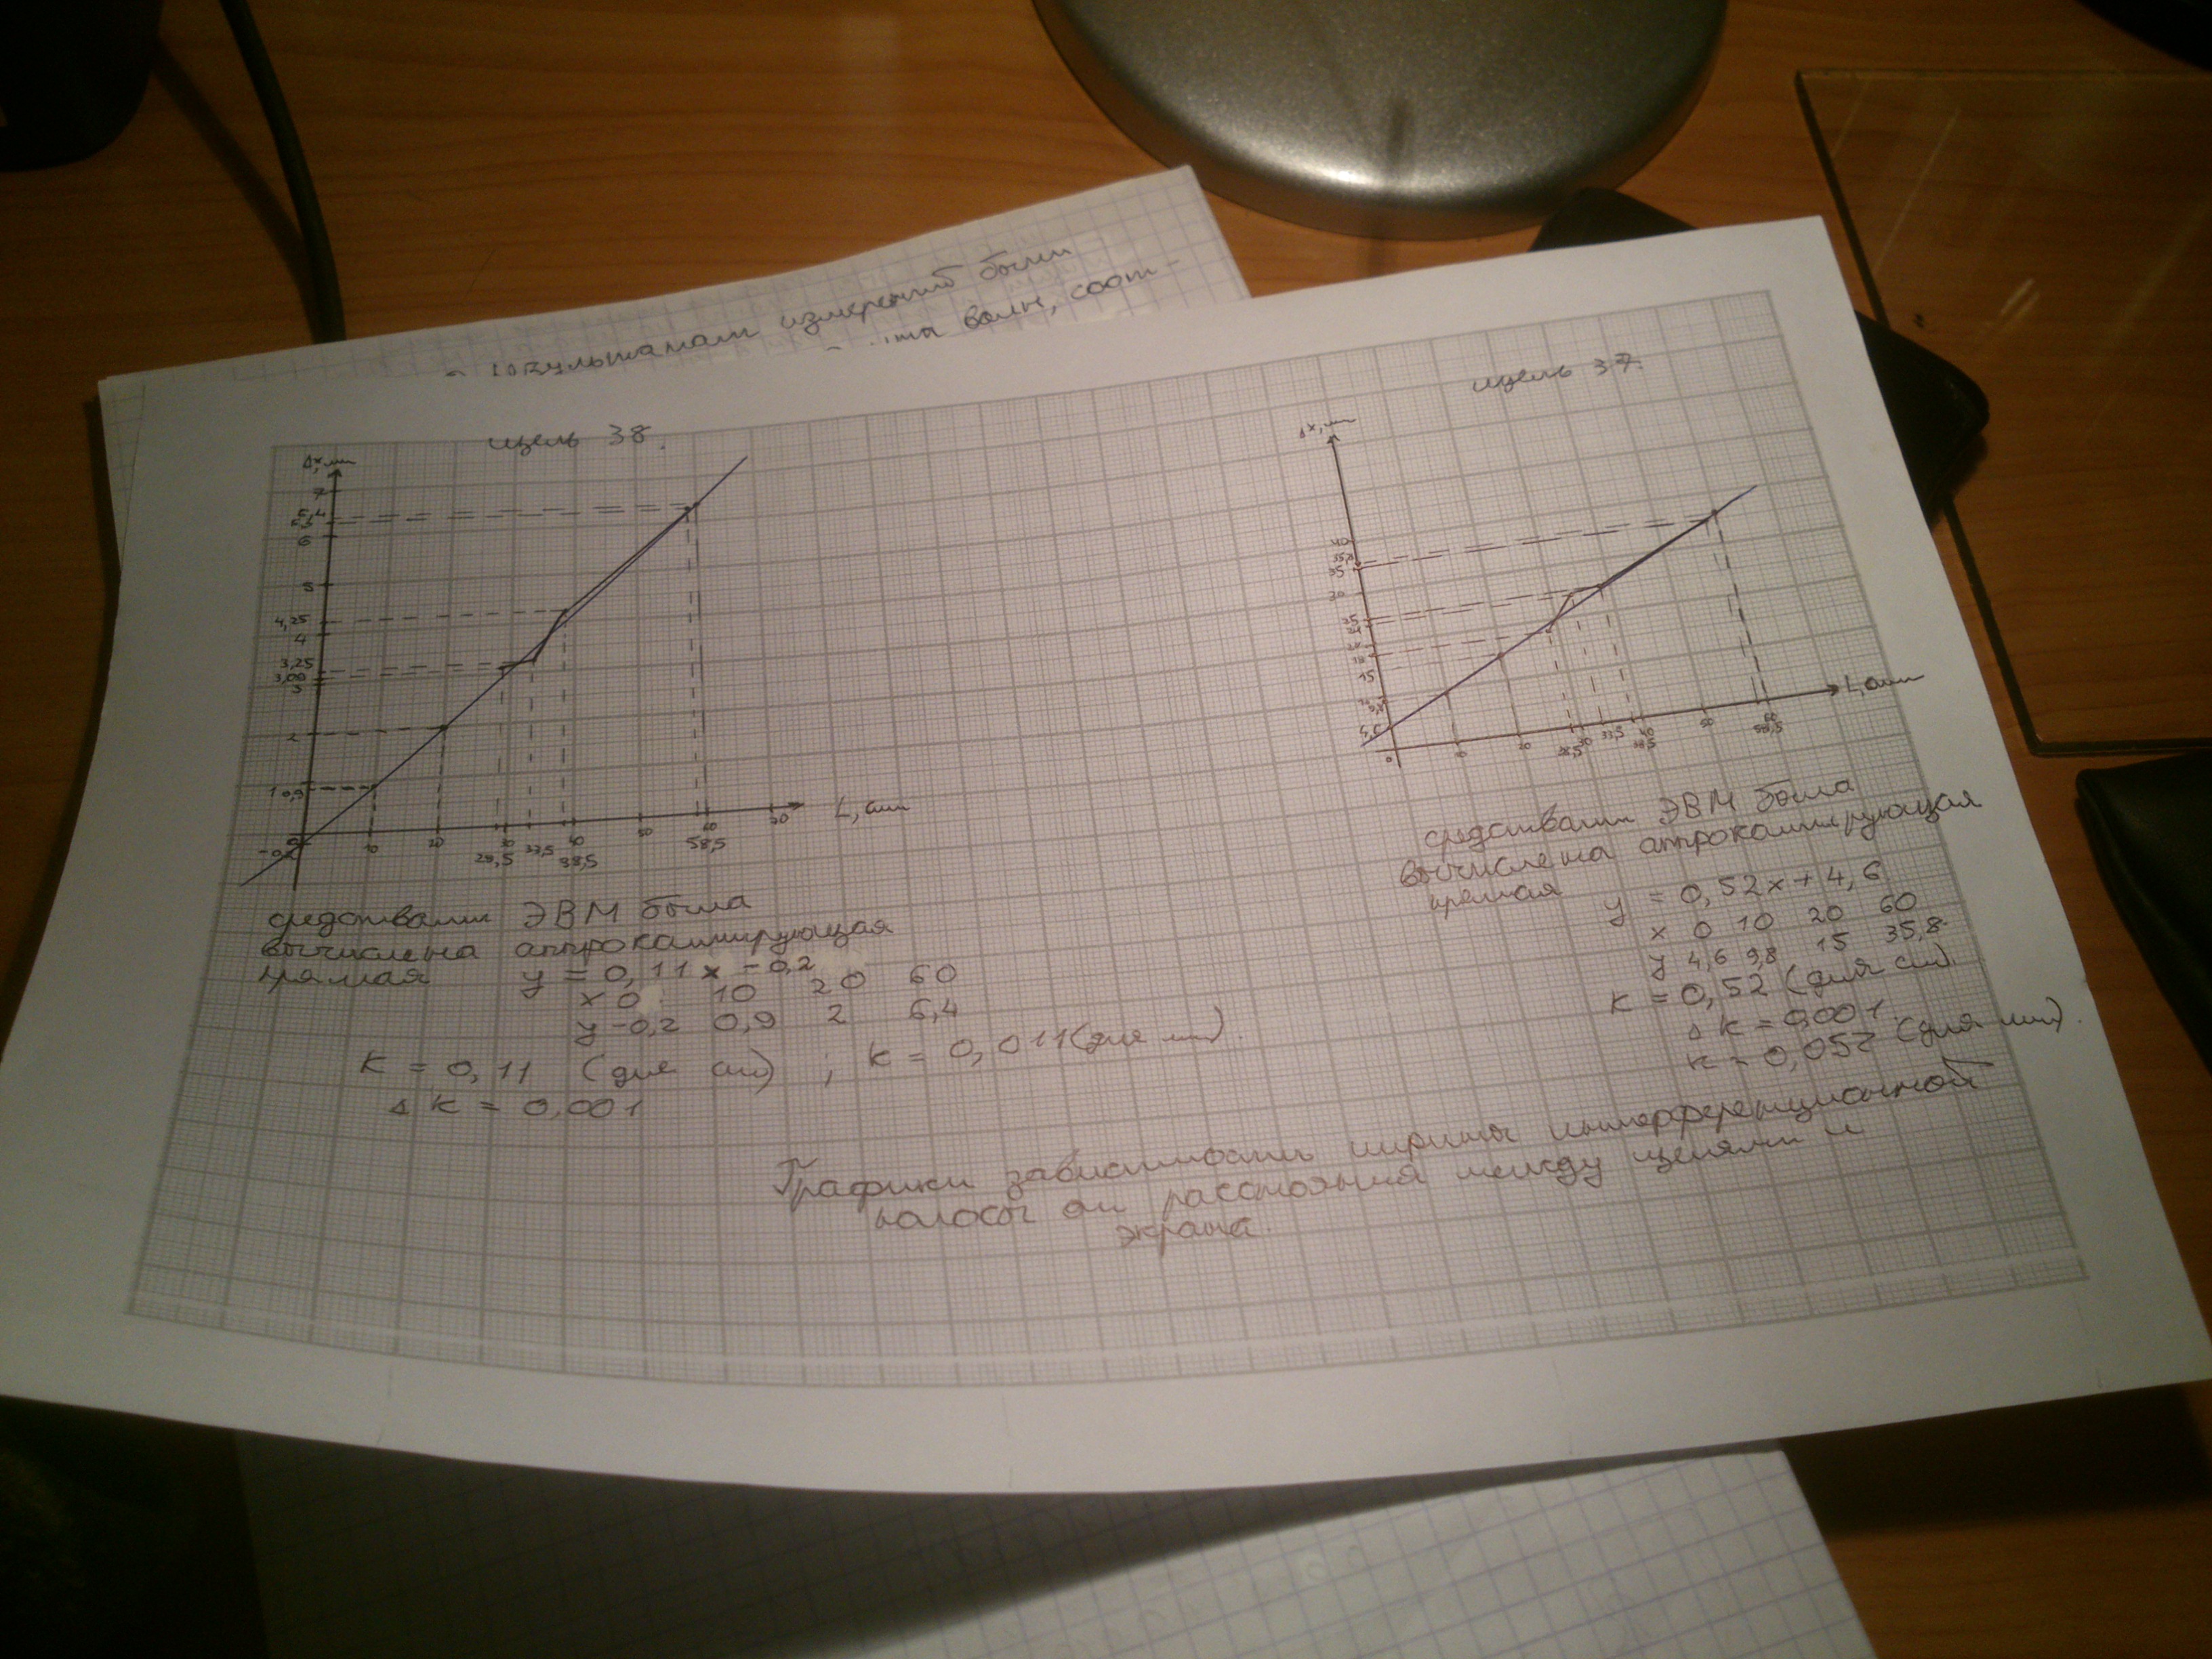 измерений были
волн, соот-
щель 38.
Δx, мм
7
6,4
6
5
4,25
4
3,25
3,00
3
2
1 0,9
0
-0,2
10 20 30 40 50 60 70
28,5 33,5 38,5 58,5
L, см
средствами ЭВМ была
вычислена аппроксимирующая
прямая y = 0,11x - 0,2
x 0 10 20 60
y -0,2 0,9 2 6,4
K = 0,11 (для см) ; K = 0,011 (для мм).
Δ K = 0,001
щель 37.
Δx, мм
40
35,8
35
30
25
15
4,6
0 10 20 30 40 50 60
28,5 33,5 38,5 58,5
L, см
средствами ЭВМ была
вычислена аппроксимирующая
прямая
y = 0,52x + 4,6
x 0 10 20 60
y 4,6 9,8 15 35,8
K = 0,52 (для см).
Δ K = 0,001.
K = 0,052 (для мм).
Графики зависимости ширины интерференционной
полосы от расстояния между щелями и
экрана.